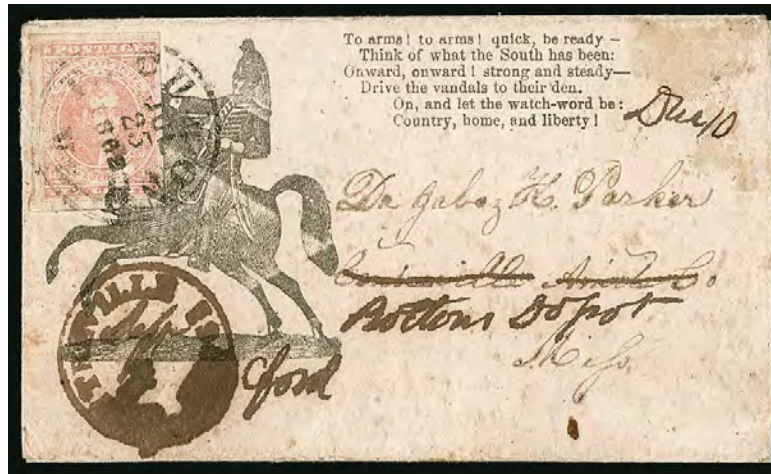 To arms! to arms! quick, be ready –
Think of what the South has been:
Onward, onward! strong and steady—
Drive the vandals to their den.
On, and let the watch-word be:
Country, home, and liberty!
Due 10
POSTAGE
25
Dr Jabez H. Parker
Bottoms Depot
Miss
ford